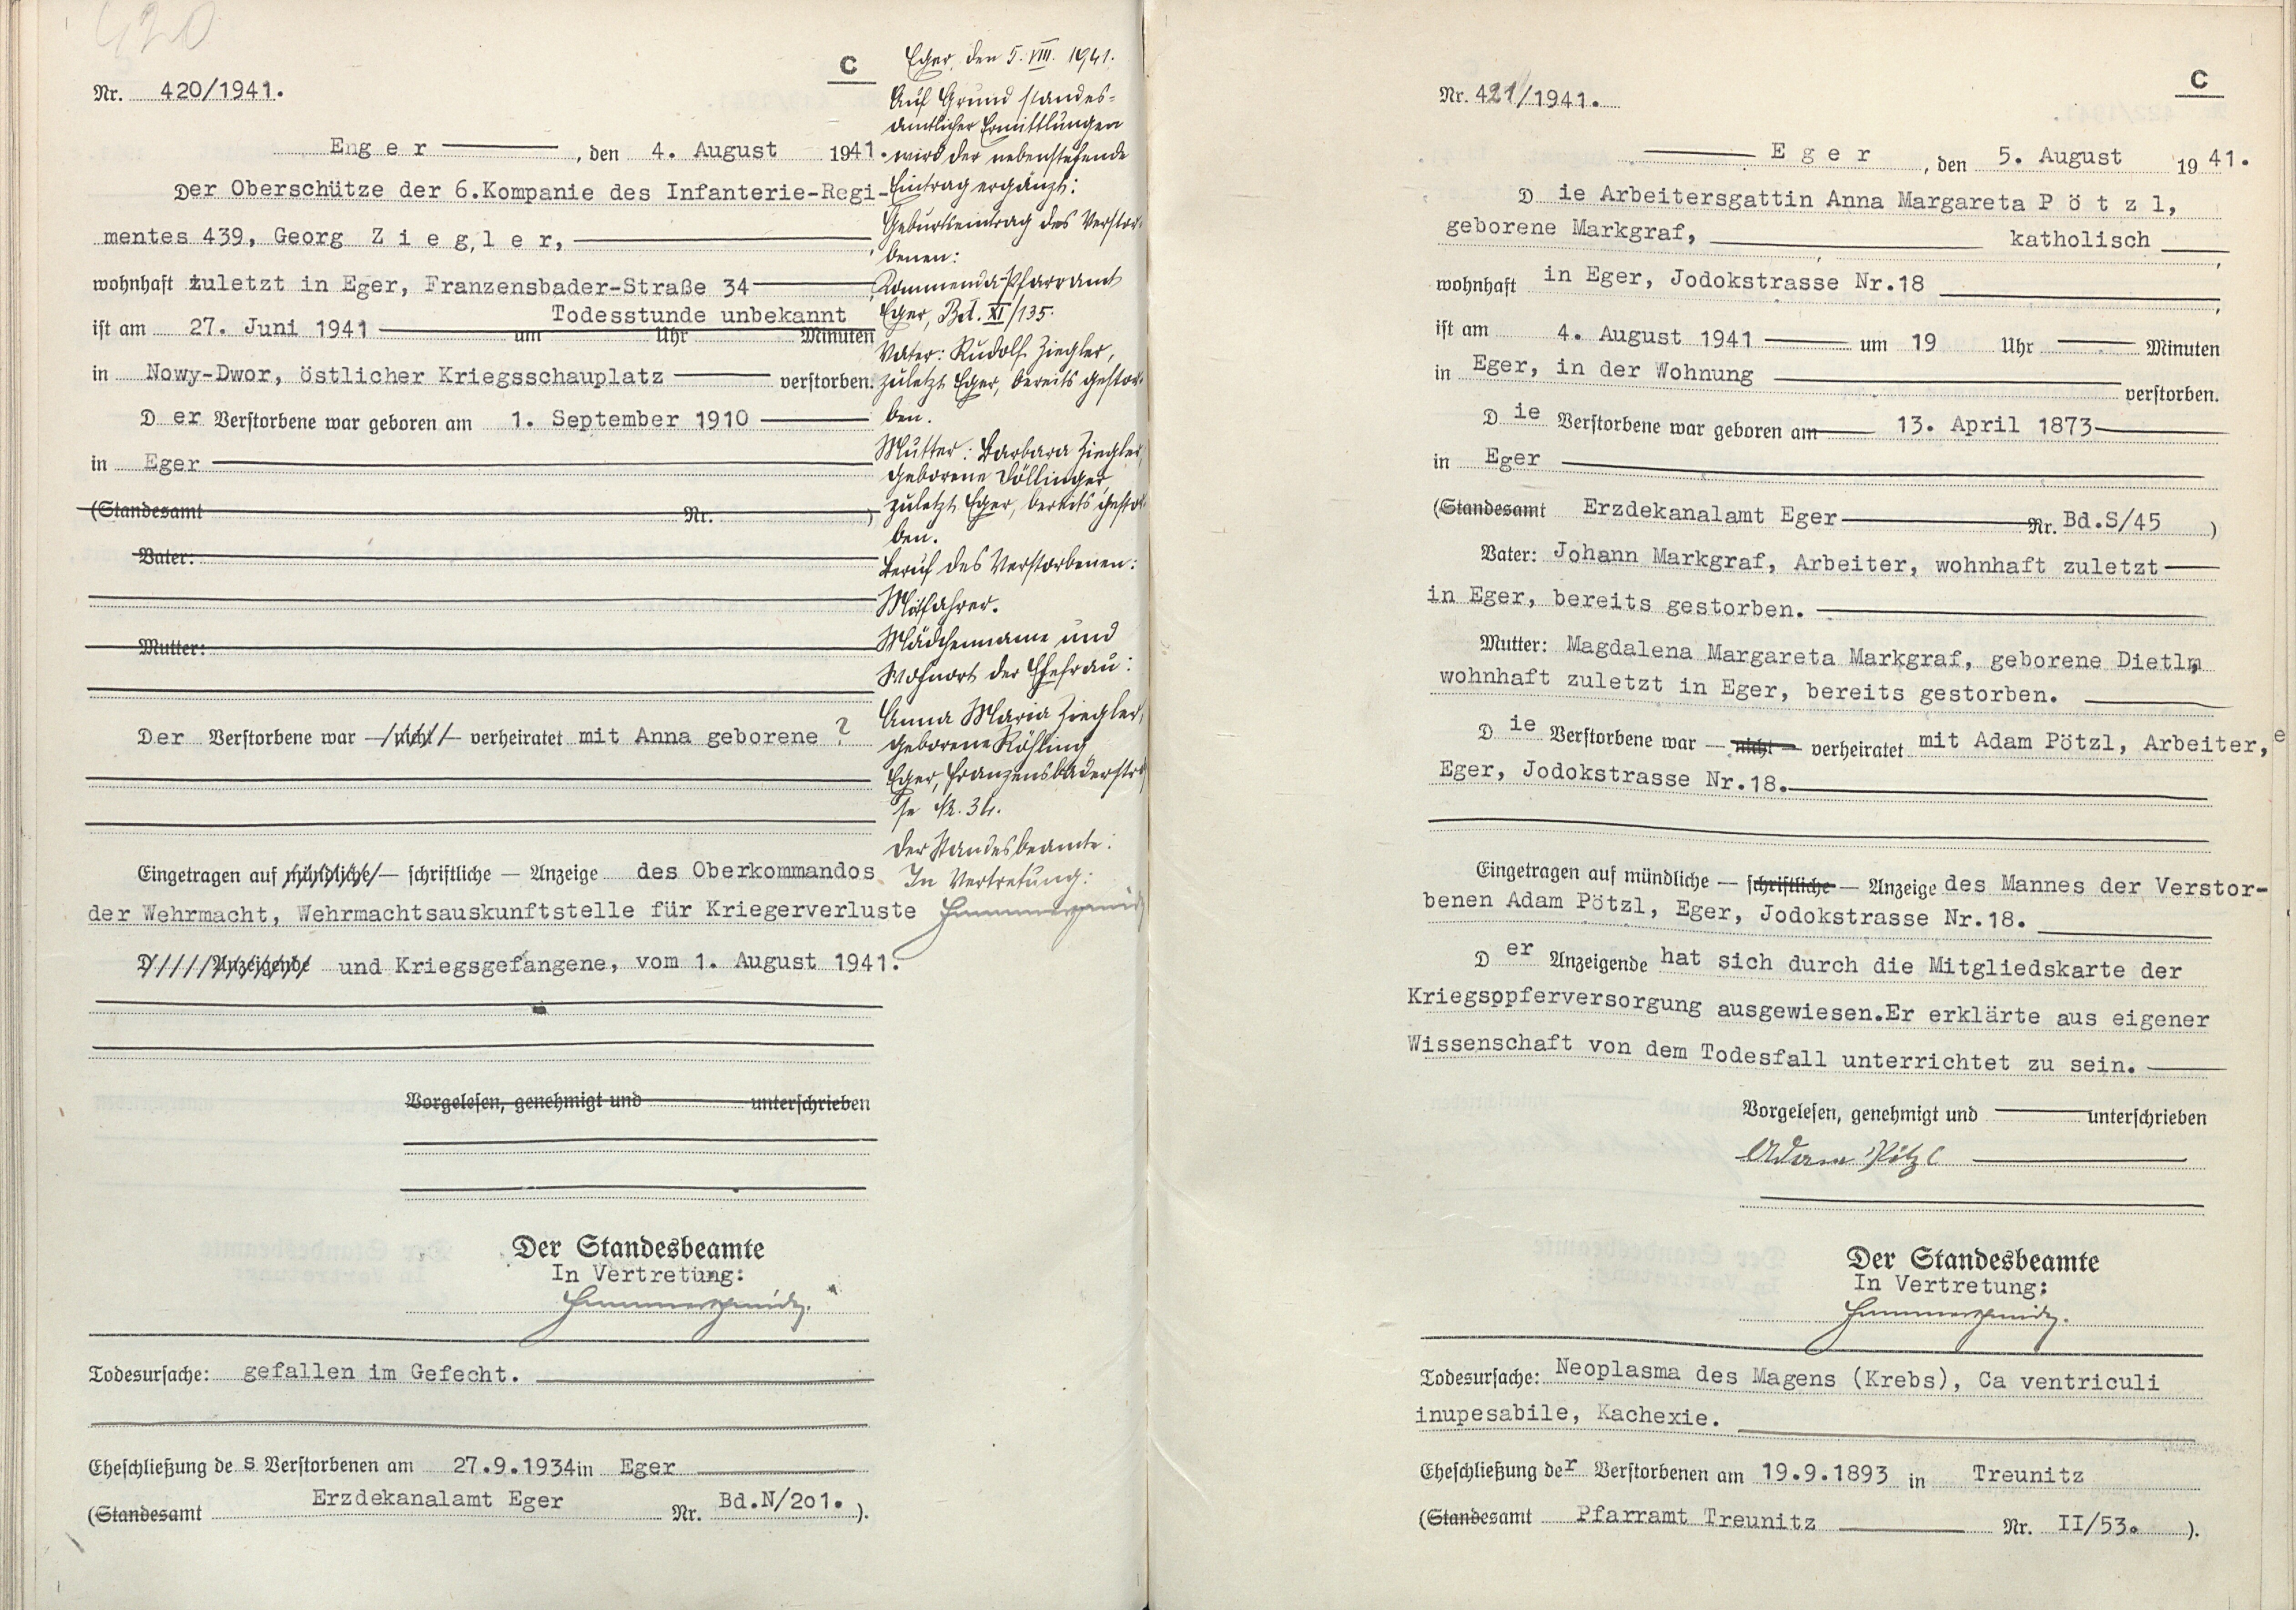 420
C
Nr. 420/1941.
Enger, den 4. August 1941.
Der Oberschütze der 6.Kompanie des Infanterie-Regi-
mentes 439, Georg Z i e g l e r,
wohnhaft zuletzt in Eger, Franzensbader-Straße 34
Todesstunde unbekannt
ist am 27. Juni 1941 um Uhr Minuten
in Nowy-Dwor, östlicher Kriegsschauplatz verstorben.
Der Verstorbene war geboren am 1. September 1910
in Eger
(Standesamt Nr. )
Vater:
Mutter:
Der Verstorbene war — nicht — verheiratet mit Anna geborene ?
Eingetragen auf mündliche — schriftliche — Anzeige des Oberkommandos
der Wehrmacht, Wehrmachtsauskunftstelle für Kriegerverluste
D Anzeigende und Kriegsgefangene, vom 1. August 1941.
Vorgelesen, genehmigt und unterschrieben
Der Standesbeamte
In Vertretung:
Todesursache: gefallen im Gefecht.
Eheschließung des Verstorbenen am 27.9.1934 in Eger
(Standesamt Erzdekanalamt Eger Nr. Bd.N/201. ).
Eger, den 5. VIII. 1941.
Auf Grund standes=
amtlicher Ermittlungen
wird der nebenstehende
Eintrag ergänzt:
Geburtseintrag des Verstor-
benen:
Kommenda-Pfarramt
Eger, Bd. XI/135.
Vater: Rudolf Ziegler,
zuletzt Eger, bereits gestor-
ben.
Mutter: Barbara Ziegler,
geborene Döllinger,
zuletzt Eger, bereits gestor-
ben.
Beruf des Verstorbenen:
Mitfahrer.
Mädchenname und
Wohnort der Ehefrau:
Anna Maria Ziegler,
geborene Röhling
Eger, Franzensbaderstra
sse Nr. 34.
Der Standesbeamte:
In Vertretung:
C
Nr. 421/1941.
E g e r, den 5. August 1941.
Die Arbeitersgattin Anna Margareta P ö t z l,
geborene Markgraf, katholisch,
wohnhaft in Eger, Jodokstrasse Nr.18,
ist am 4. August 1941 um 19 Uhr Minuten
in Eger, in der Wohnung verstorben.
Die Verstorbene war geboren am 13. April 1873
in Eger
(Standesamt Erzdekanalamt Eger Nr. Bd.S/45 )
Vater: Johann Markgraf, Arbeiter, wohnhaft zuletzt
in Eger, bereits gestorben.
Mutter: Magdalena Margareta Markgraf, geborene Dietl,
wohnhaft zuletzt in Eger, bereits gestorben.
Die Verstorbene war — nicht — verheiratet mit Adam Pötzl, Arbeiter, e
Eger, Jodokstrasse Nr.18.
Eingetragen auf mündliche — schriftliche — Anzeige des Mannes der Verstor-
benen Adam Pötzl, Eger, Jodokstrasse Nr.18.
Der Anzeigende hat sich durch die Mitgliedskarte der
Kriegsopferversorgung ausgewiesen.Er erklärte aus eigener
Wissenschaft von dem Todesfall unterrichtet zu sein.
Vorgelesen, genehmigt und unterschrieben
Adam Pötzl
Der Standesbeamte
In Vertretung:
Todesursache: Neoplasma des Magens (Krebs), Ca ventriculi
inupesabile, Kachexie.
Eheschließung der Verstorbenen am 19.9.1893 in Treunitz
(Standesamt Pfarramt Treunitz Nr. II/53. ).